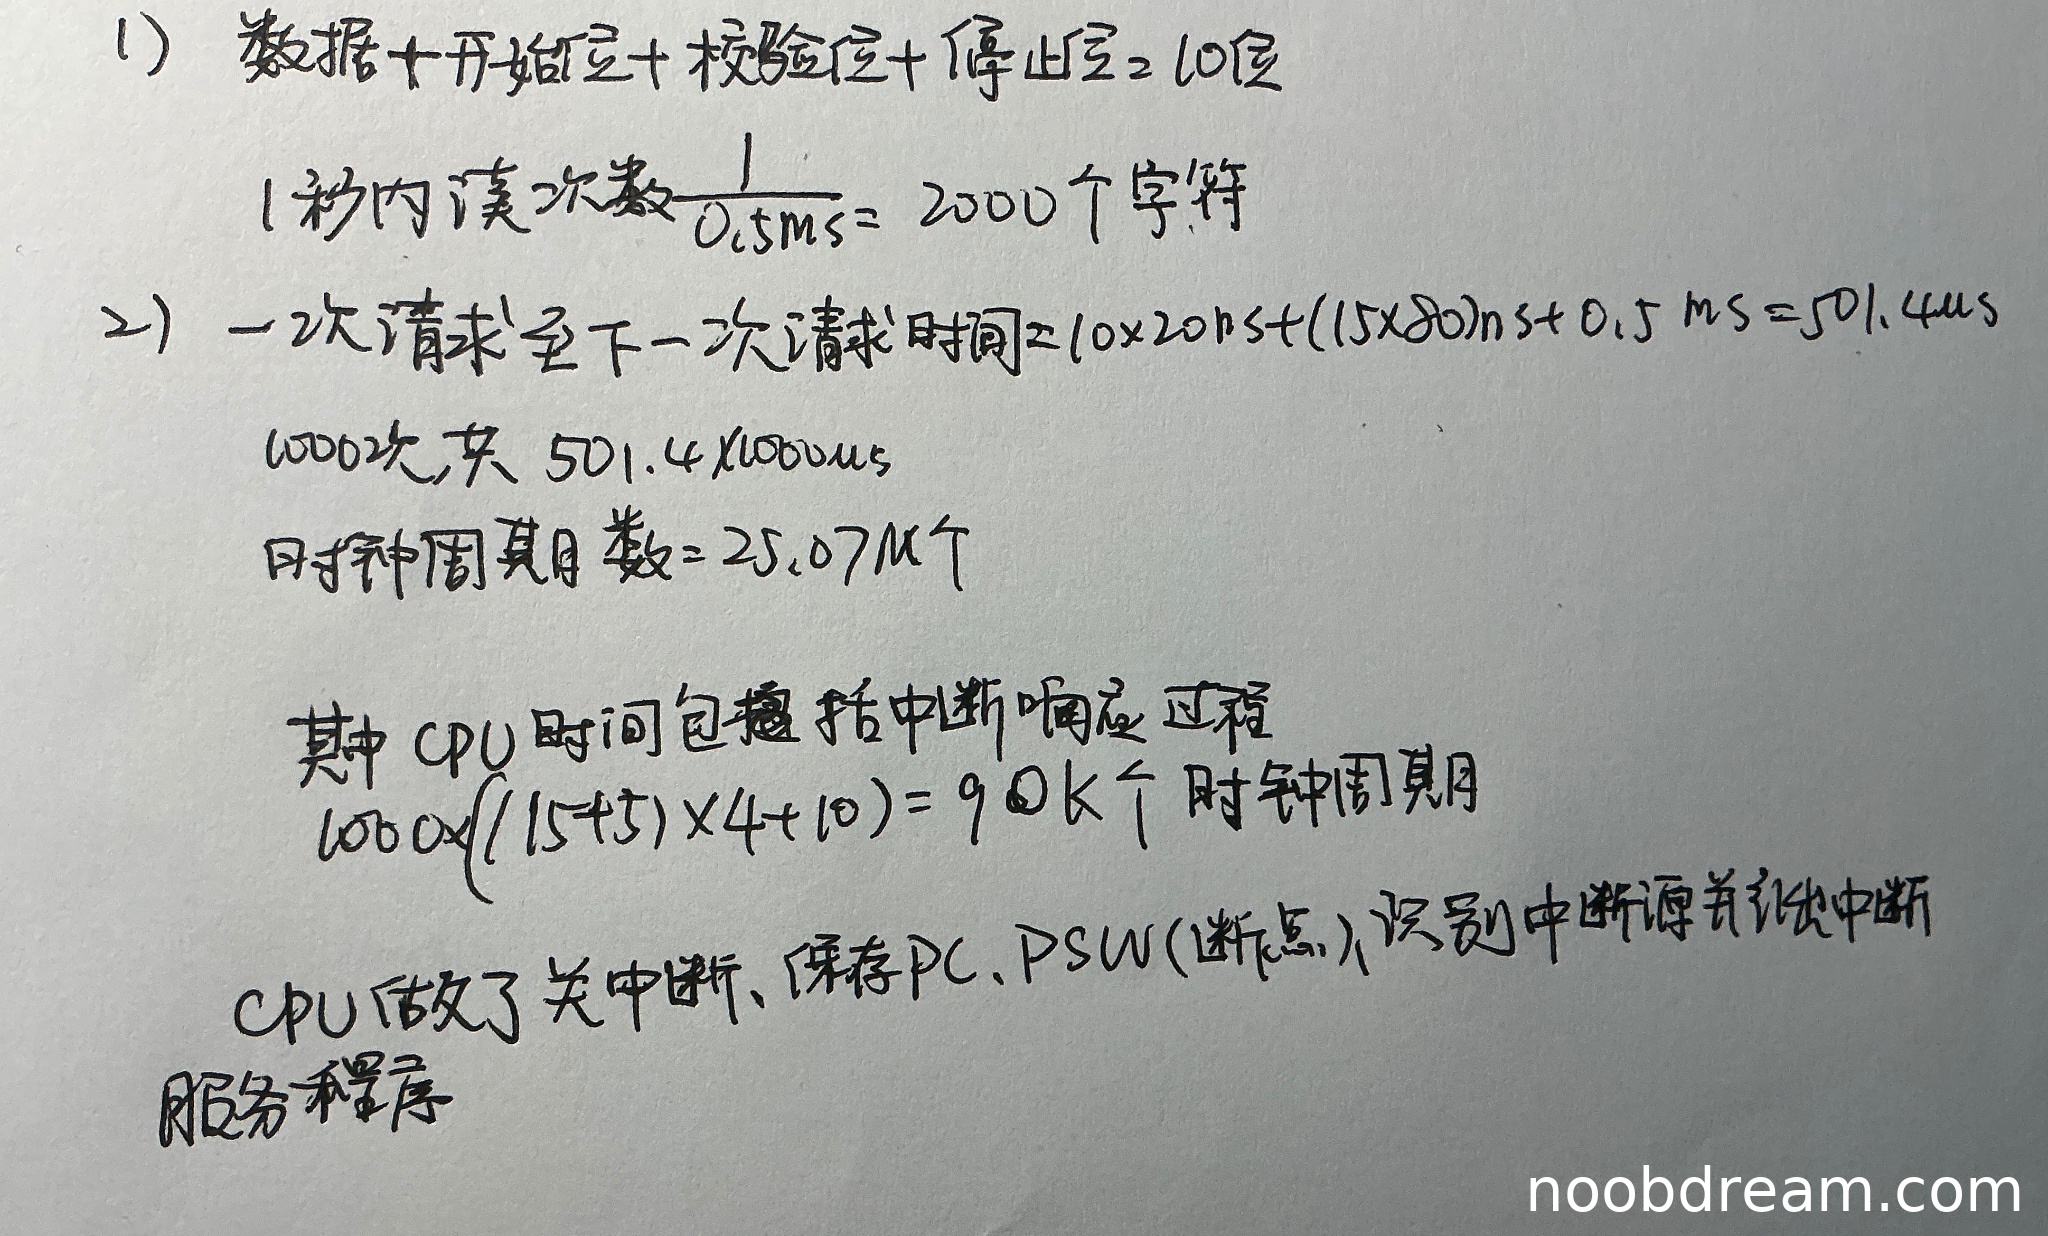 1) 数据+开始位+校验位+停止位=10位
1秒内读次数 1/0.5ms = 2000个字符
2) 一次请求至下一次请求时间=10×20ns+(15×80)ns+0.5 ms=501.4us
1000次,共 501.4×1000us
时钟周期数=25.07M个
其中 CPU 时间包括中断响应过程
1000×((15+5)×4+10)=90K个 时钟周期
CPU做了关中断、保存PC、PSW(断点)、识别中断源并引出中断
服务程序
noobdream.com